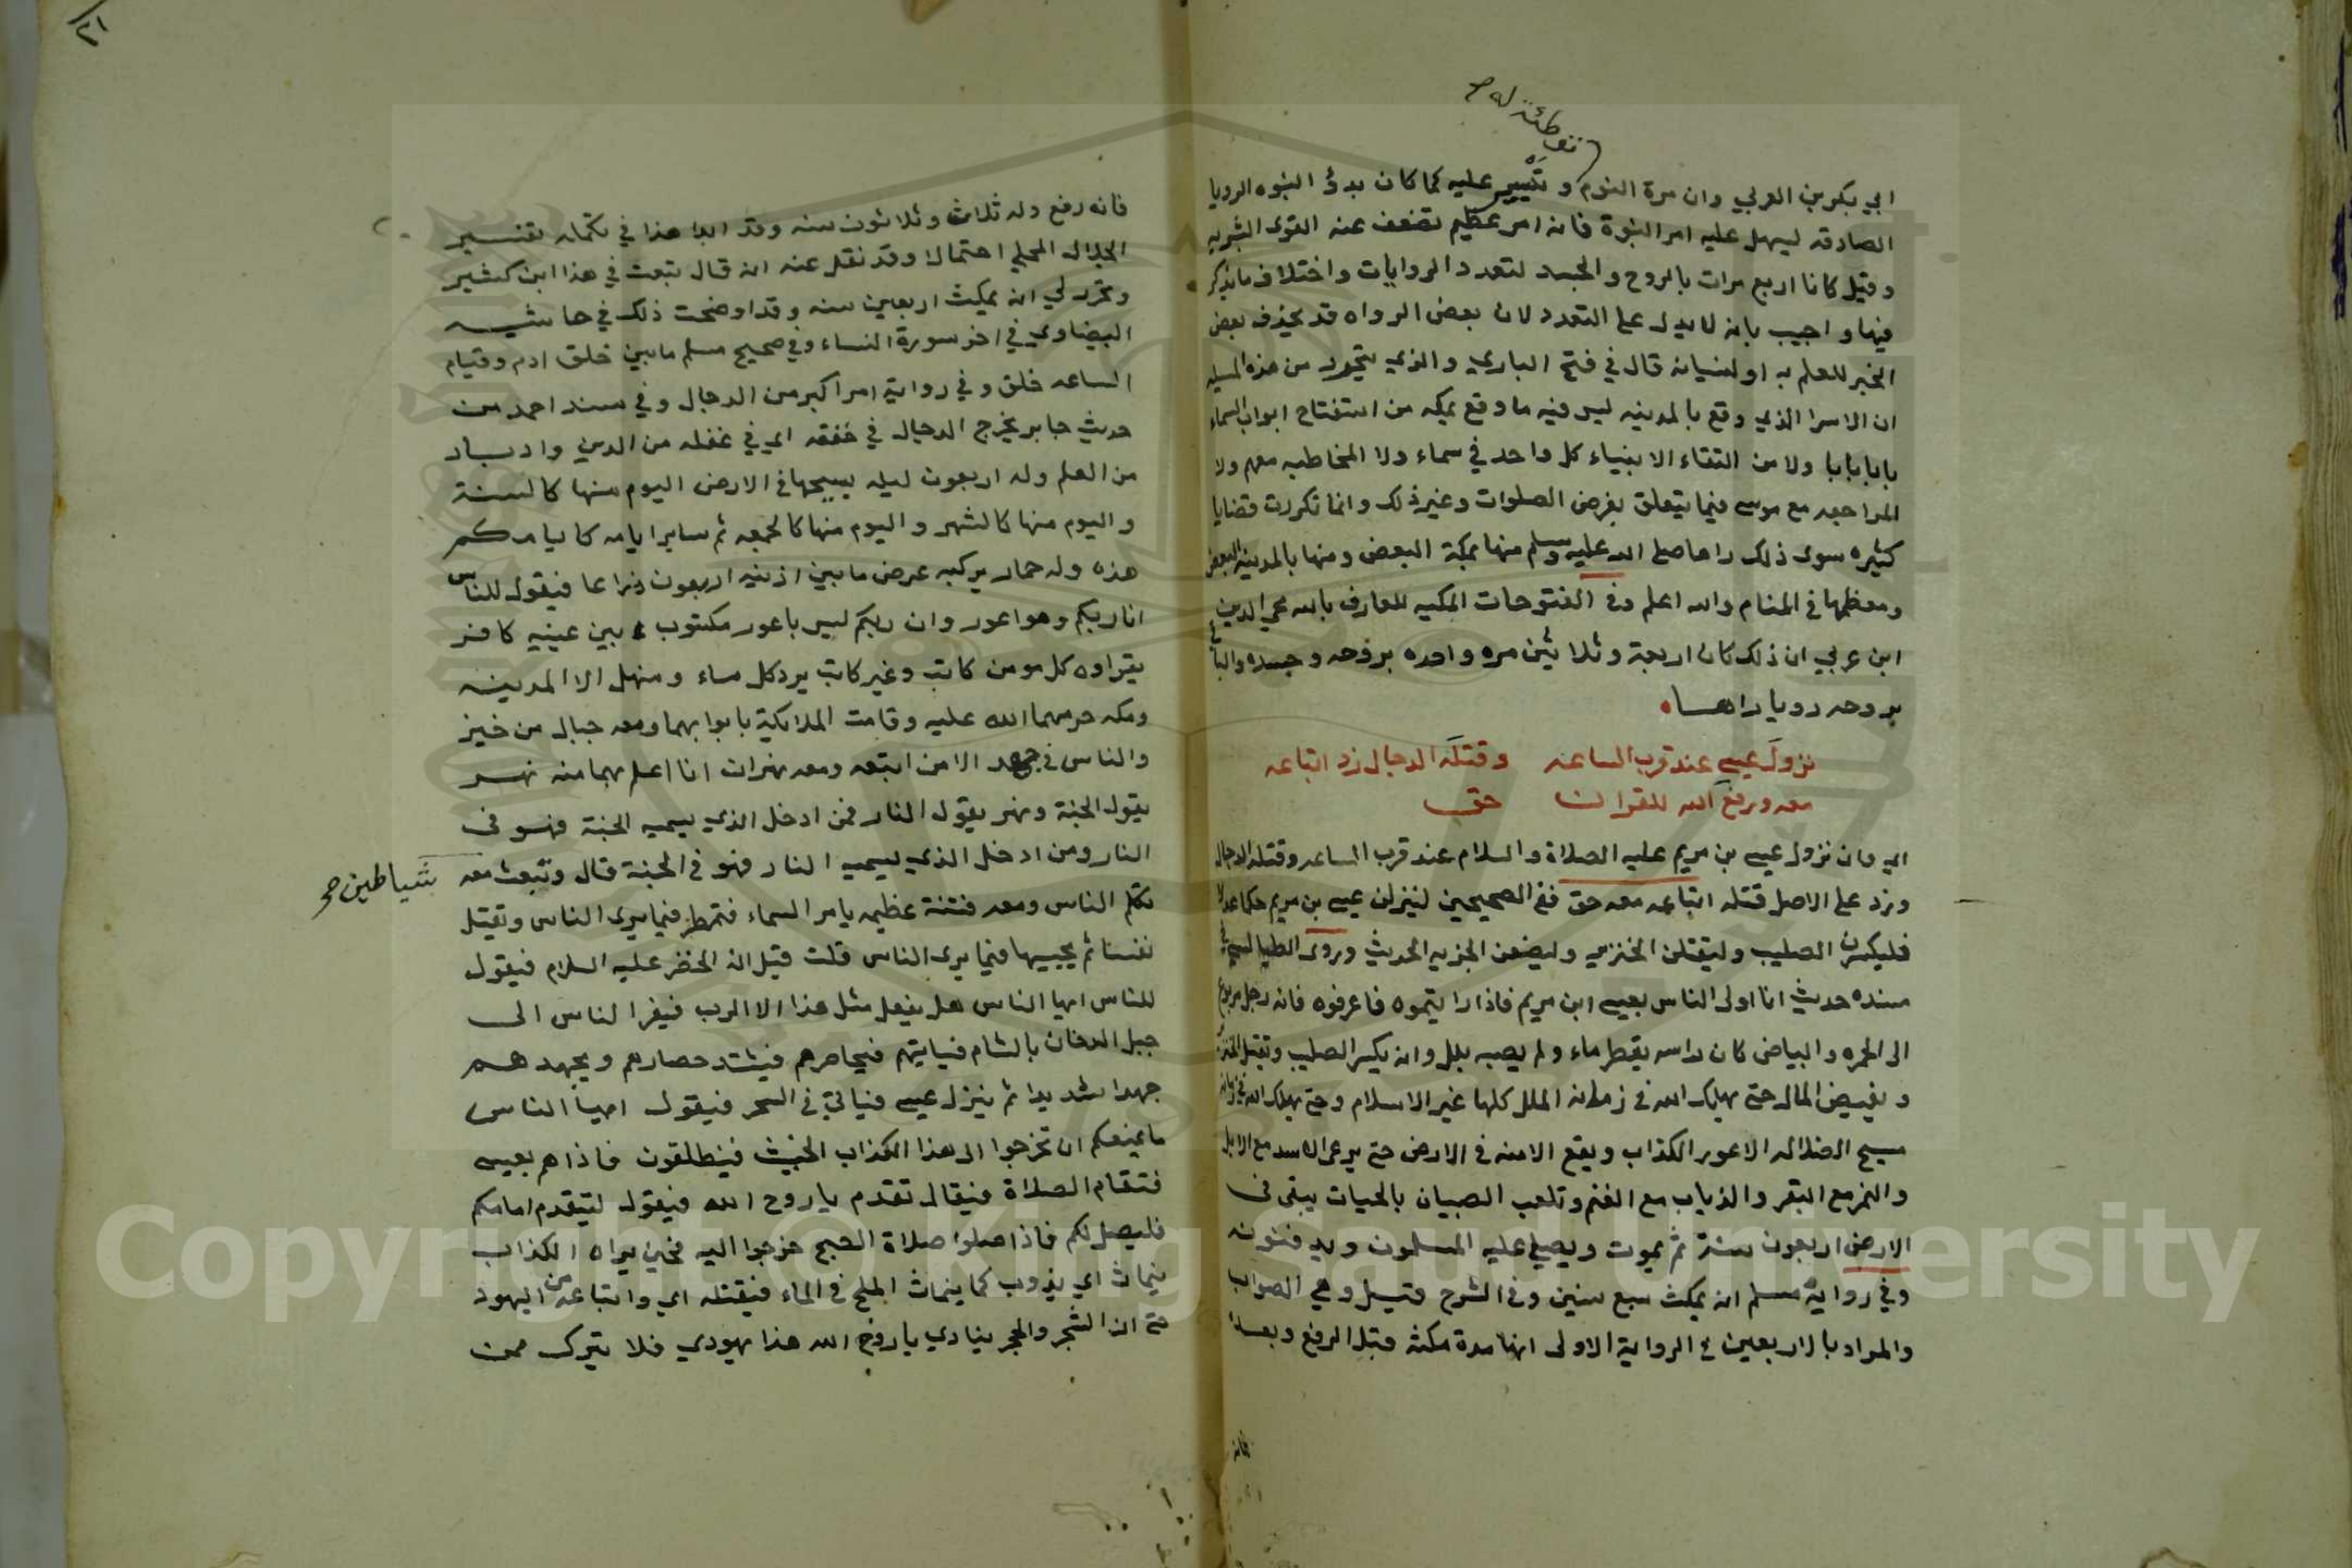 توطئة له صح
ابي بكر بن العربي وان مرة النوم وتيسير عليه كما كان بدؤ النبوه الرويا
الصادقه ليسهل عليه امر النبوة فانه امر عظيم تضعف عنه القوى البشريه
وقيل كانا اربع مرات بالروح والجسد لتعدد الروايات واختلاف ما يذكر
فيها واجيب بانه لا يدل على التعدد لان بعض الرواه قد يحذف بعض
الخبر للعلم به او لنسيانه قال في فتح الباري والذي يتحرر من هذه المسيله
ان الاسرا الذي وقع بالمدينه ليس فيه ما وقع بمكه من استفتاح ابواب السماء
بابا بابا ولا من التقاء الانبياء كل واحد في سماء ولا المخاطبه معهم ولا
المراجعه مع موسى فيما يتعلق بفرض الصلوات وغير ذلك وانما تكررت قضايا
كثيره سوى ذلك راها صلى الله عليه وسلم منها بمكة البعض ومنها بالمدينه البعض
ومعظمها في المنام والله اعلم وفي الفتوحات المكيه للعارف بالله محي الدين
ابن عربي ان ذلك كان اربعة وثلاثين مره واحده بروحه وجسده والباقي
بروحه رويا راها
نزول عيسى عند قرب الساعه وقتله الدجال زد اتباعه
معه ورفع الله للقران حق
اي وان نزول عيسى بن مريم عليه الصلاة والسلام عند قرب الساعه وقتله الدجال
وزد على الاصل قتله اتباعه معه حق ففي الصحيحين لينزلن عيسى بن مريم حكما عدلا
فليكسرن الصليب وليقتلن الخنزير وليضعن الجزيه الحديث وروى الطيالسي في
مسنده حديث انا اولى الناس بعيسى ابن مريم فاذا رايتموه فاعرفوه فانه رجل مربوع
الى الحمره والبياض كان راسه يقطر ماء ولم يصبه بلل وانه يكسر الصليب ويقتل الخنزير
ويفيض المال حتى يهلك الله في زمانه الملل كلها غير الاسلام وحتى يهلك الله في زمانه
مسيح الضلاله الاعور الكذاب ويقع الامنه في الارض حتى يرعى الاسد مع الابل
والنمر مع البقر والذياب مع الغنم وتلعب الصبيان بالحيات يبقى في
الارض اربعون سنة ثم يموت ويصلي عليه المسلمون ويدفنونه
وفي رواية مسلم انه يمكث سبع سنين وفي الشرح قيل وهي الصواب
والمراد بالاربعين في الرواية الاولى انها مدة مكثه قبل الرفع وبعده
فانه
٢١
فانه رفع وله ثلاث وثلاثون سنه وقد ابدا هذا في تكمله تفسير
الجلال المحلي احتمالا وقد نقل عنه انه قال تبعت في هذا ابن كثير
وتحرر لي انه يمكث اربعين سنه وقد اوضحت ذلك في حاشيه
البيضاوي في اخر سورة النساء وفي صحيح مسلم ما بين خلق ادم وقيام
الساعه خلق وفي رواية امر اكبر من الدجال وفي مسند احمد من
حديث جابر يخرج الدجال في خفقه اي في غفله من الدين وادبار
من العلم وله اربعون ليله يسيحها في الارض اليوم منها كالسنة
واليوم منها كالشهر واليوم منها كالجمعه ثم ساير ايامه كايامكم
هذه وله حمار يركبه عرض ما بين اذنيه اربعون ذراعا فيقول للناس
انا ربكم وهو اعور وان ربكم ليس باعور مكتوب بين عينيه كافر
يقراوه كل مومن كاتب وغير كاتب يرد كل ماء ومنهل الا المدينه
ومكه حرمهما الله عليه وقامت الملايكة بابوابهما ومعه جبال من خبز
والناس في جهد الا من اتبعه ومعه نهران انا اعلم بهما منه نهر
يقول الجنة ونهر يقول النار فمن ادخل الذي يسميه الجنة فهو في
النار ومن ادخل الذي يسميه النار فهو في الجنة قال وتبعث معه
شياطين صح
تكلم الناس ومعه فتنة عظيمه يامر السماء فتمطر فيما يرى الناس ويقتل
نفسا ثم يحييها فيما يرى الناس قلت قيل انه الخضر عليه السلام فيقول
للناس ايها الناس هل يفعل مثل هذا الا الرب فيفر الناس الى
جبل الدخان بالشام فياتيهم فيحاصرهم فيشتد حصارهم ويجهدهم
جهدا شديدا ثم ينزل عيسى فياتي في السحر فيقول ايها الناس
ما يمنعكم ان تخرجوا الى هذا الكذاب الخبيث فينطلقون فاذا هم بعيسى
فتقام الصلاة فيقال تقدم يا روح الله فيقول ليتقدم امامكم
فليصل لكم فاذا صلوا صلاة الصبح خرجوا اليه فحين يراه الكذاب
ينماث اي يذوب كما ينماث الملح في الماء فيقتله اي واتباعه من اليهود
حتى ان الشجر والحجر ينادي يا روح الله هذا يهودي فلا يترك ممن
Copyright © King Saud University